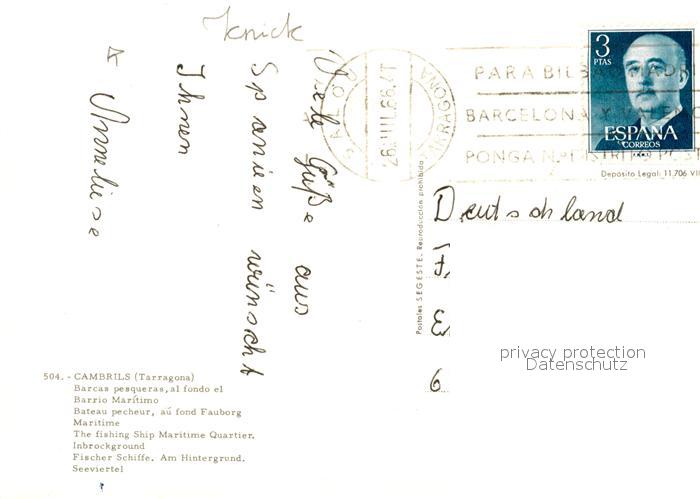 Knick
Viele Grüße aus
Spanien wünscht
Ihnen
Anneliese
3
PTAS
ESPAÑA
CORREOS
SALOU
TARRAGONA
PARA BILBAO, MADRID
BARCELONA Y VALENCIA
PONGA N.º DISTRITO POSTAL
Depósito Legal: 11.706 VII
Deutschland
6
privacy protection
Datenschutz
Postales SEGESTE. Reproducción prohibida
504. - CAMBRILS (Tarragona)
Barcas pesqueras, al fondo el
Barrio Marítimo
Bateau pecheur, aú fond Fauborg
Maritime
The fishing Ship Maritime Quartier,
Inbrockground
Fischer Schiffe. Am Hintergrund.
Seeviertel